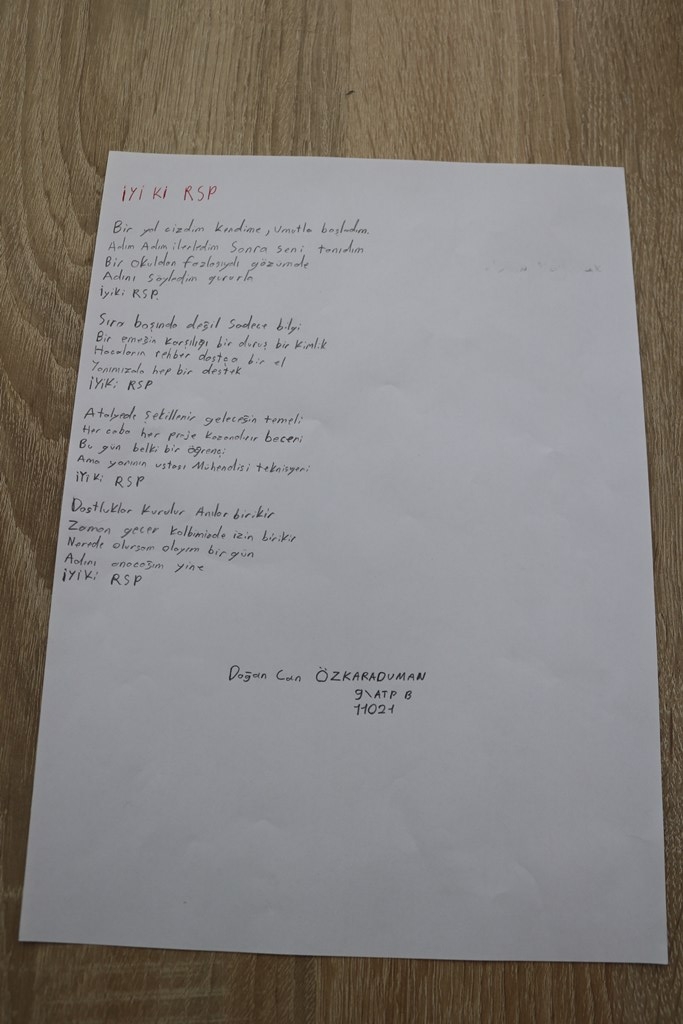 İYİ Kİ RSP
Bir yol cizdim kendime, umutla başladım.
Adım Adım ilerledim Sonra seni tanıdım
Bir Okuldan fazlasıydı gözümde
Adını söyledim gururla
iyiki RSP.
Sıra başında değil Sadece bilgi
Bir emeğin karşılığı bir duruş bir kimlik
Hocaların rehber dostça bir el
Yanımızda hep bir destek
İYİKİ RSP
Atölyede Şekillenir geleceğin temeli
Her caba her proje kazandırır beceri
Bu gün belki bir öğrenci
Ama yarının ustası Mühendisi teknisyeni
İYİKİ RSP
Dostluklar Kurulur Anılar birikir
Zaman gecer Kalbimizde izin birikir
Nerede olursam olayım bir gün
Adını anacağım yine
İYİKİ RSP
Doğan Can ÖZKARADUMAN
9\ATP B
11021